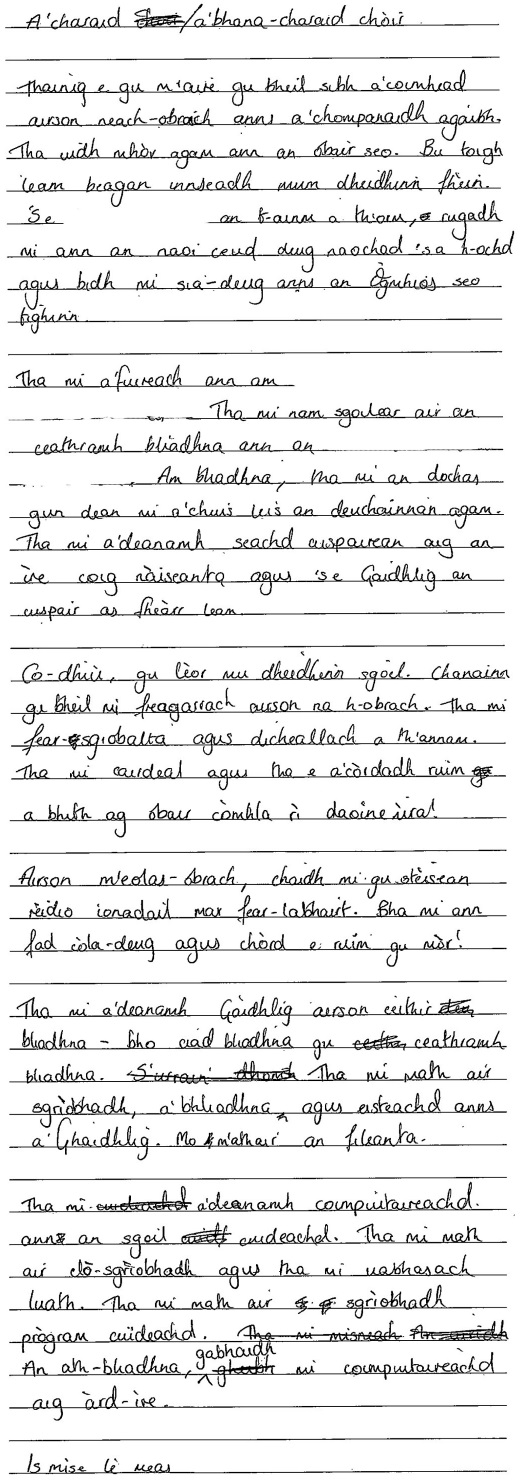 A'charaid /a'bhana-charaid chòir
Thainig e gu m'aire gu bheil sibh a'coimhead
airson neach-obrach anns a'chompanaidh agaibh.
Tha uidh mhòr agam ann an obair seo. Bu toigh
leam beagan innseadh mum dheidhinn fhèin.
'Se an t-ainm a th'orm, rugadh
mi ann an naoi ceud deug naochad 'sa h-ochd
agus bidh mi sia-deug anns an Ògmhios seo
tighinn.
Tha mi a'fuireach ann am
Tha mi nam sgoilear air an
ceathramh bliadhna ann an
. Am bliadhna, tha mi an dochas
gun dean mi a'chuis leis an deuchainnan agam.
Tha mi a'deanamh seachd cuspairean aig an
ìre coig nàiseanta agus 'se Gaidhlig an
cuspair as fheàrr leam.
Co-dhiù, gu lèor mu dheidhinn sgoil. Chanainn
gu bheil mi freagarrach airson na h-obrach. Tha mi
fear-sgiobalta agus dicheallach a th'annam.
Tha mi cairdeal agus tha e a'còrdadh ruim
a bhith ag obair còmhla ri daoine ùra!
Airson m'eolas-obrach, chaidh mi gu stèisean
rèidio ionadail mar fear-labhairt. Bha mi ann
fad cola-deug agus chòrd e ruim gu mòr!
Tha mi a'deanamh Gàidhlig airson ceithir
bliadhna - bho ciad bliadhna gu ceathramh
bliadhna. Tha mi math air
sgrìobhadh, a'bhliadhna, agus eisteachd anns
a'Ghaidhlig. Mo m'athair an fileanta.
Tha mi a'deanamh coimpiutaireachd.
anns an sgoil cuideachd. Tha mi math
air clò-sgrìobhadh agus tha mi uabhasach
luath. Tha mi math air sgrìobhadh
prògram cuideachd.
An ath-bhliadhna, gabhaidh mi coimpiutaireachd
aig àrd-ìre.
Is mise le meas